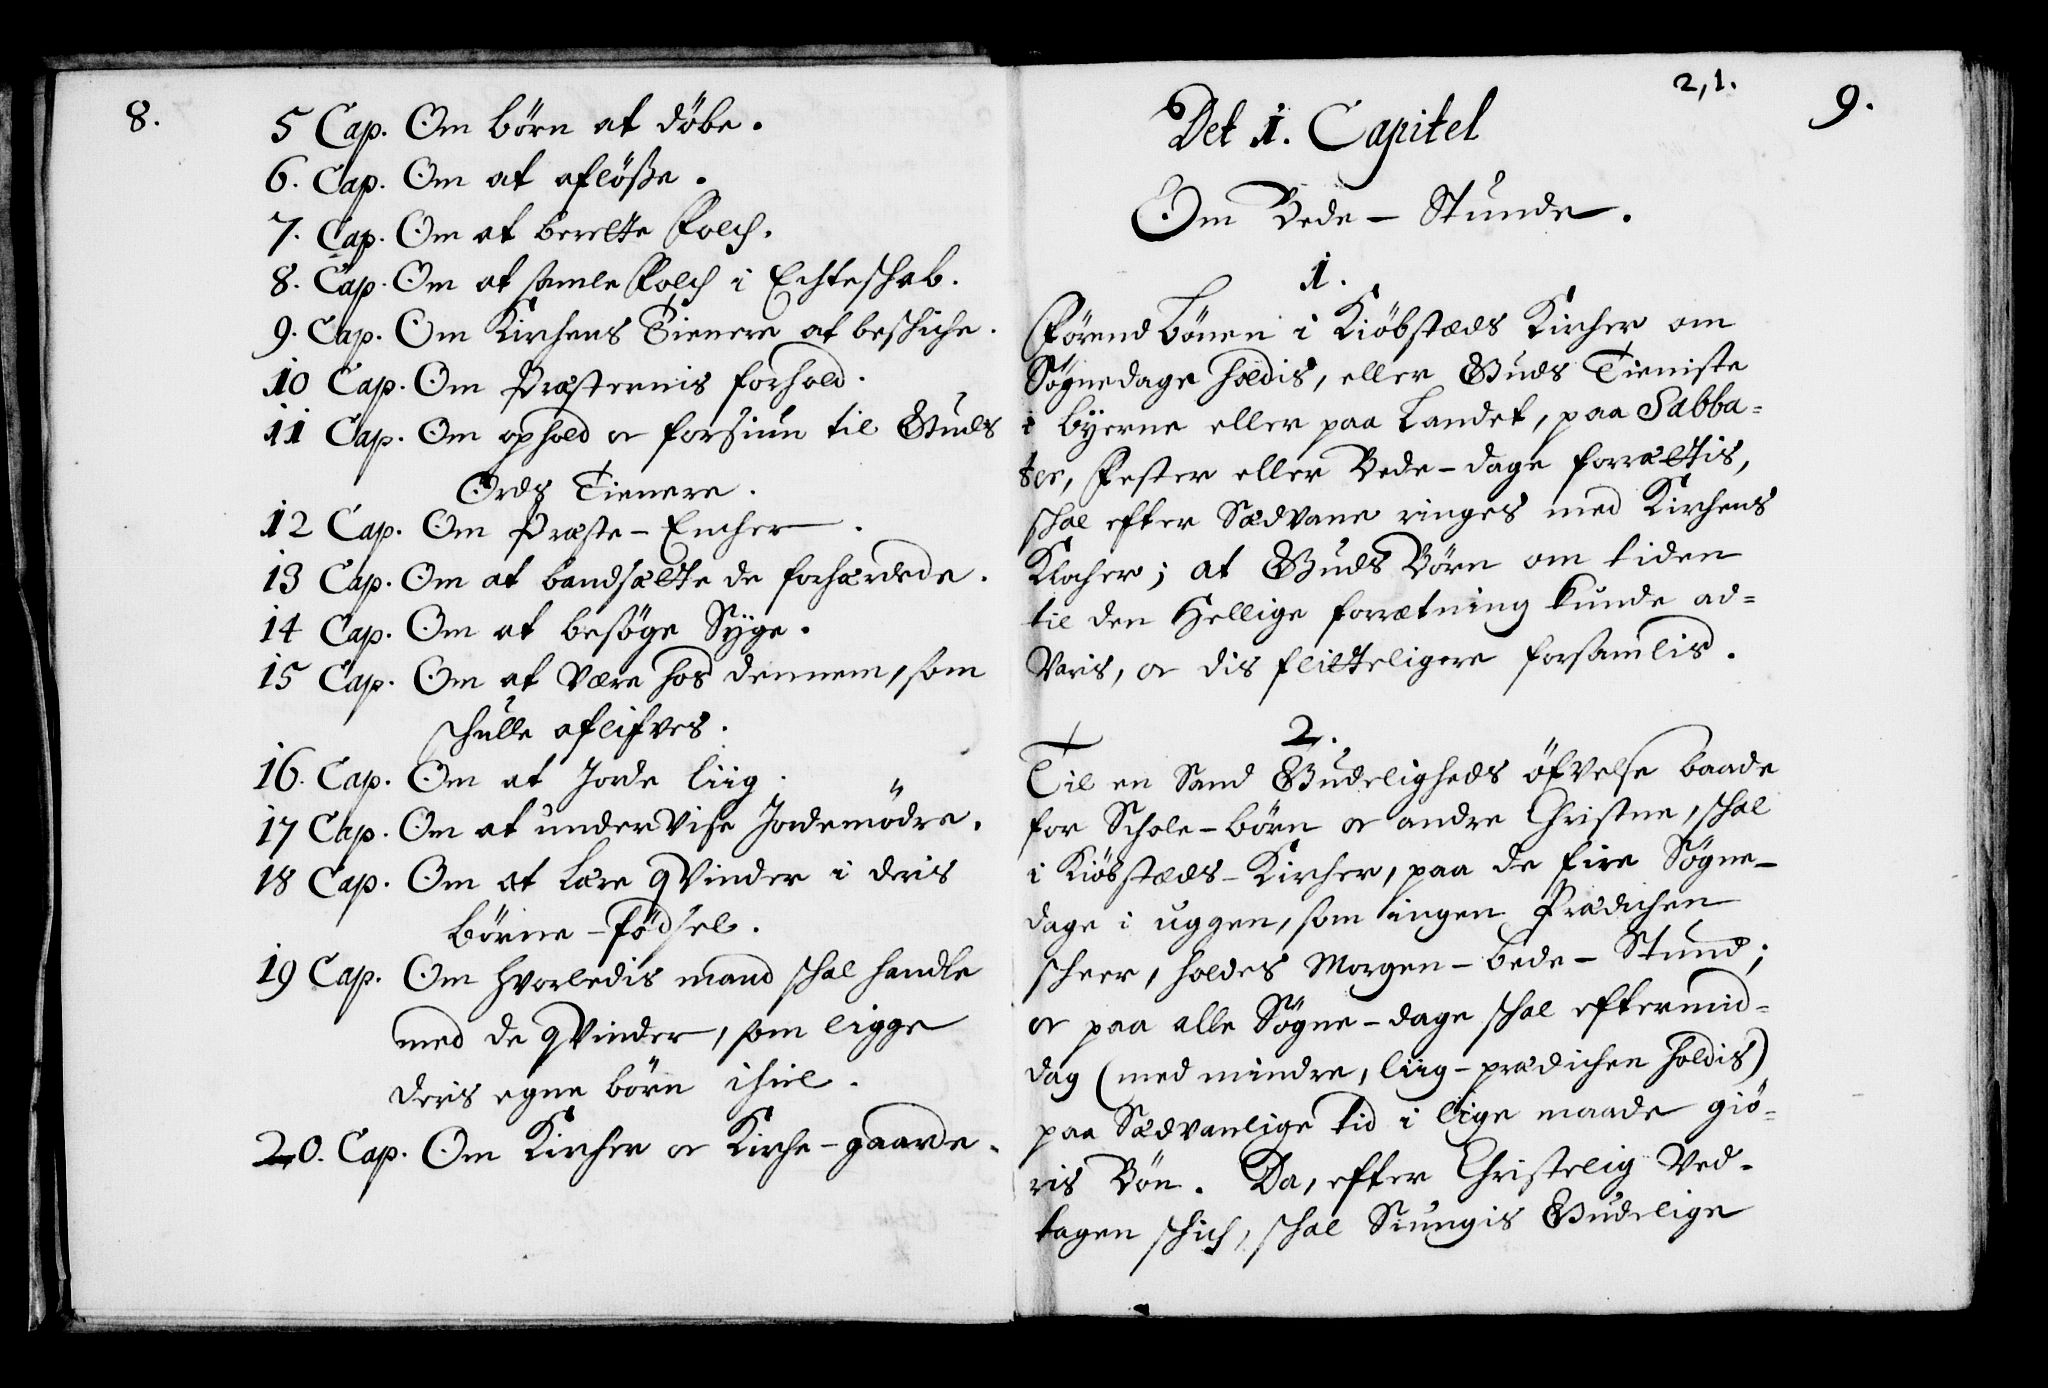 8.
5 Cap. Om börn at döbe.
6. Cap. Om at aflöße.
7. Cap. Om at berette Folch.
8. Cap. Om at samle Folch i Echteschab.
9. Cap. Om Kirchens Tienere at beschiche.
10 Cap. Om Præsternis forhold.
11 Cap. Om ophold oc forsiun til Guds
Ords Tienere.
12 Cap. Om Præste-Encher.
13 Cap. Om at bandsætte de forhærdede.
14 Cap. Om at besöge Syge.
15 Cap. Om at være hos dennem, som
schulle aflifves.
16. Cap. Om at Jorde liig.
17 Cap. Om at undervise Jordemödre.
18 Cap. Om at lære qvinder i deris
börne-födsel.
19 Cap. Om hvorledis mand schal handle
med de qvinder, som ligge
deris egne börn ihiel.
20. Cap. Om Kircher oc Kirche-gaarde.
2,1.
9.
Det 1. Capitel
Om Bede-Stunde.
1.
Förend bönen i Kiöbstæds Kircher om
Sögnedage holdis, eller Guds Tieniste
i byerne eller paa Landet, paa Sabba=
ter, Fester eller Bede-dage forrættis,
schal efter Sædvane ringes med Kirchens
Klocher; at Guds Börn om tiden
til den Hellige forrætning kunde ad=
varis, oc dis flitteligere forsamlis.
2.
Til en sand Gudeligheds öfvelse baade
for Schole-börn oc andre Christne, schal
i Kiöbstæds-Kircher, paa de fire Sögne-
dage i uggen, som ingen Prædichen
scheer, holdes Morgen-bede-Stund;
oc paa alle Sögne-dage schal eftermid=
dag (med mindre, liig-prædichen holdis)
paa Sædvanlige tid i lige maade giö=
ris Bön. Da, efter Christelig Ved-
tagen schich, schal Siungis Gudelige